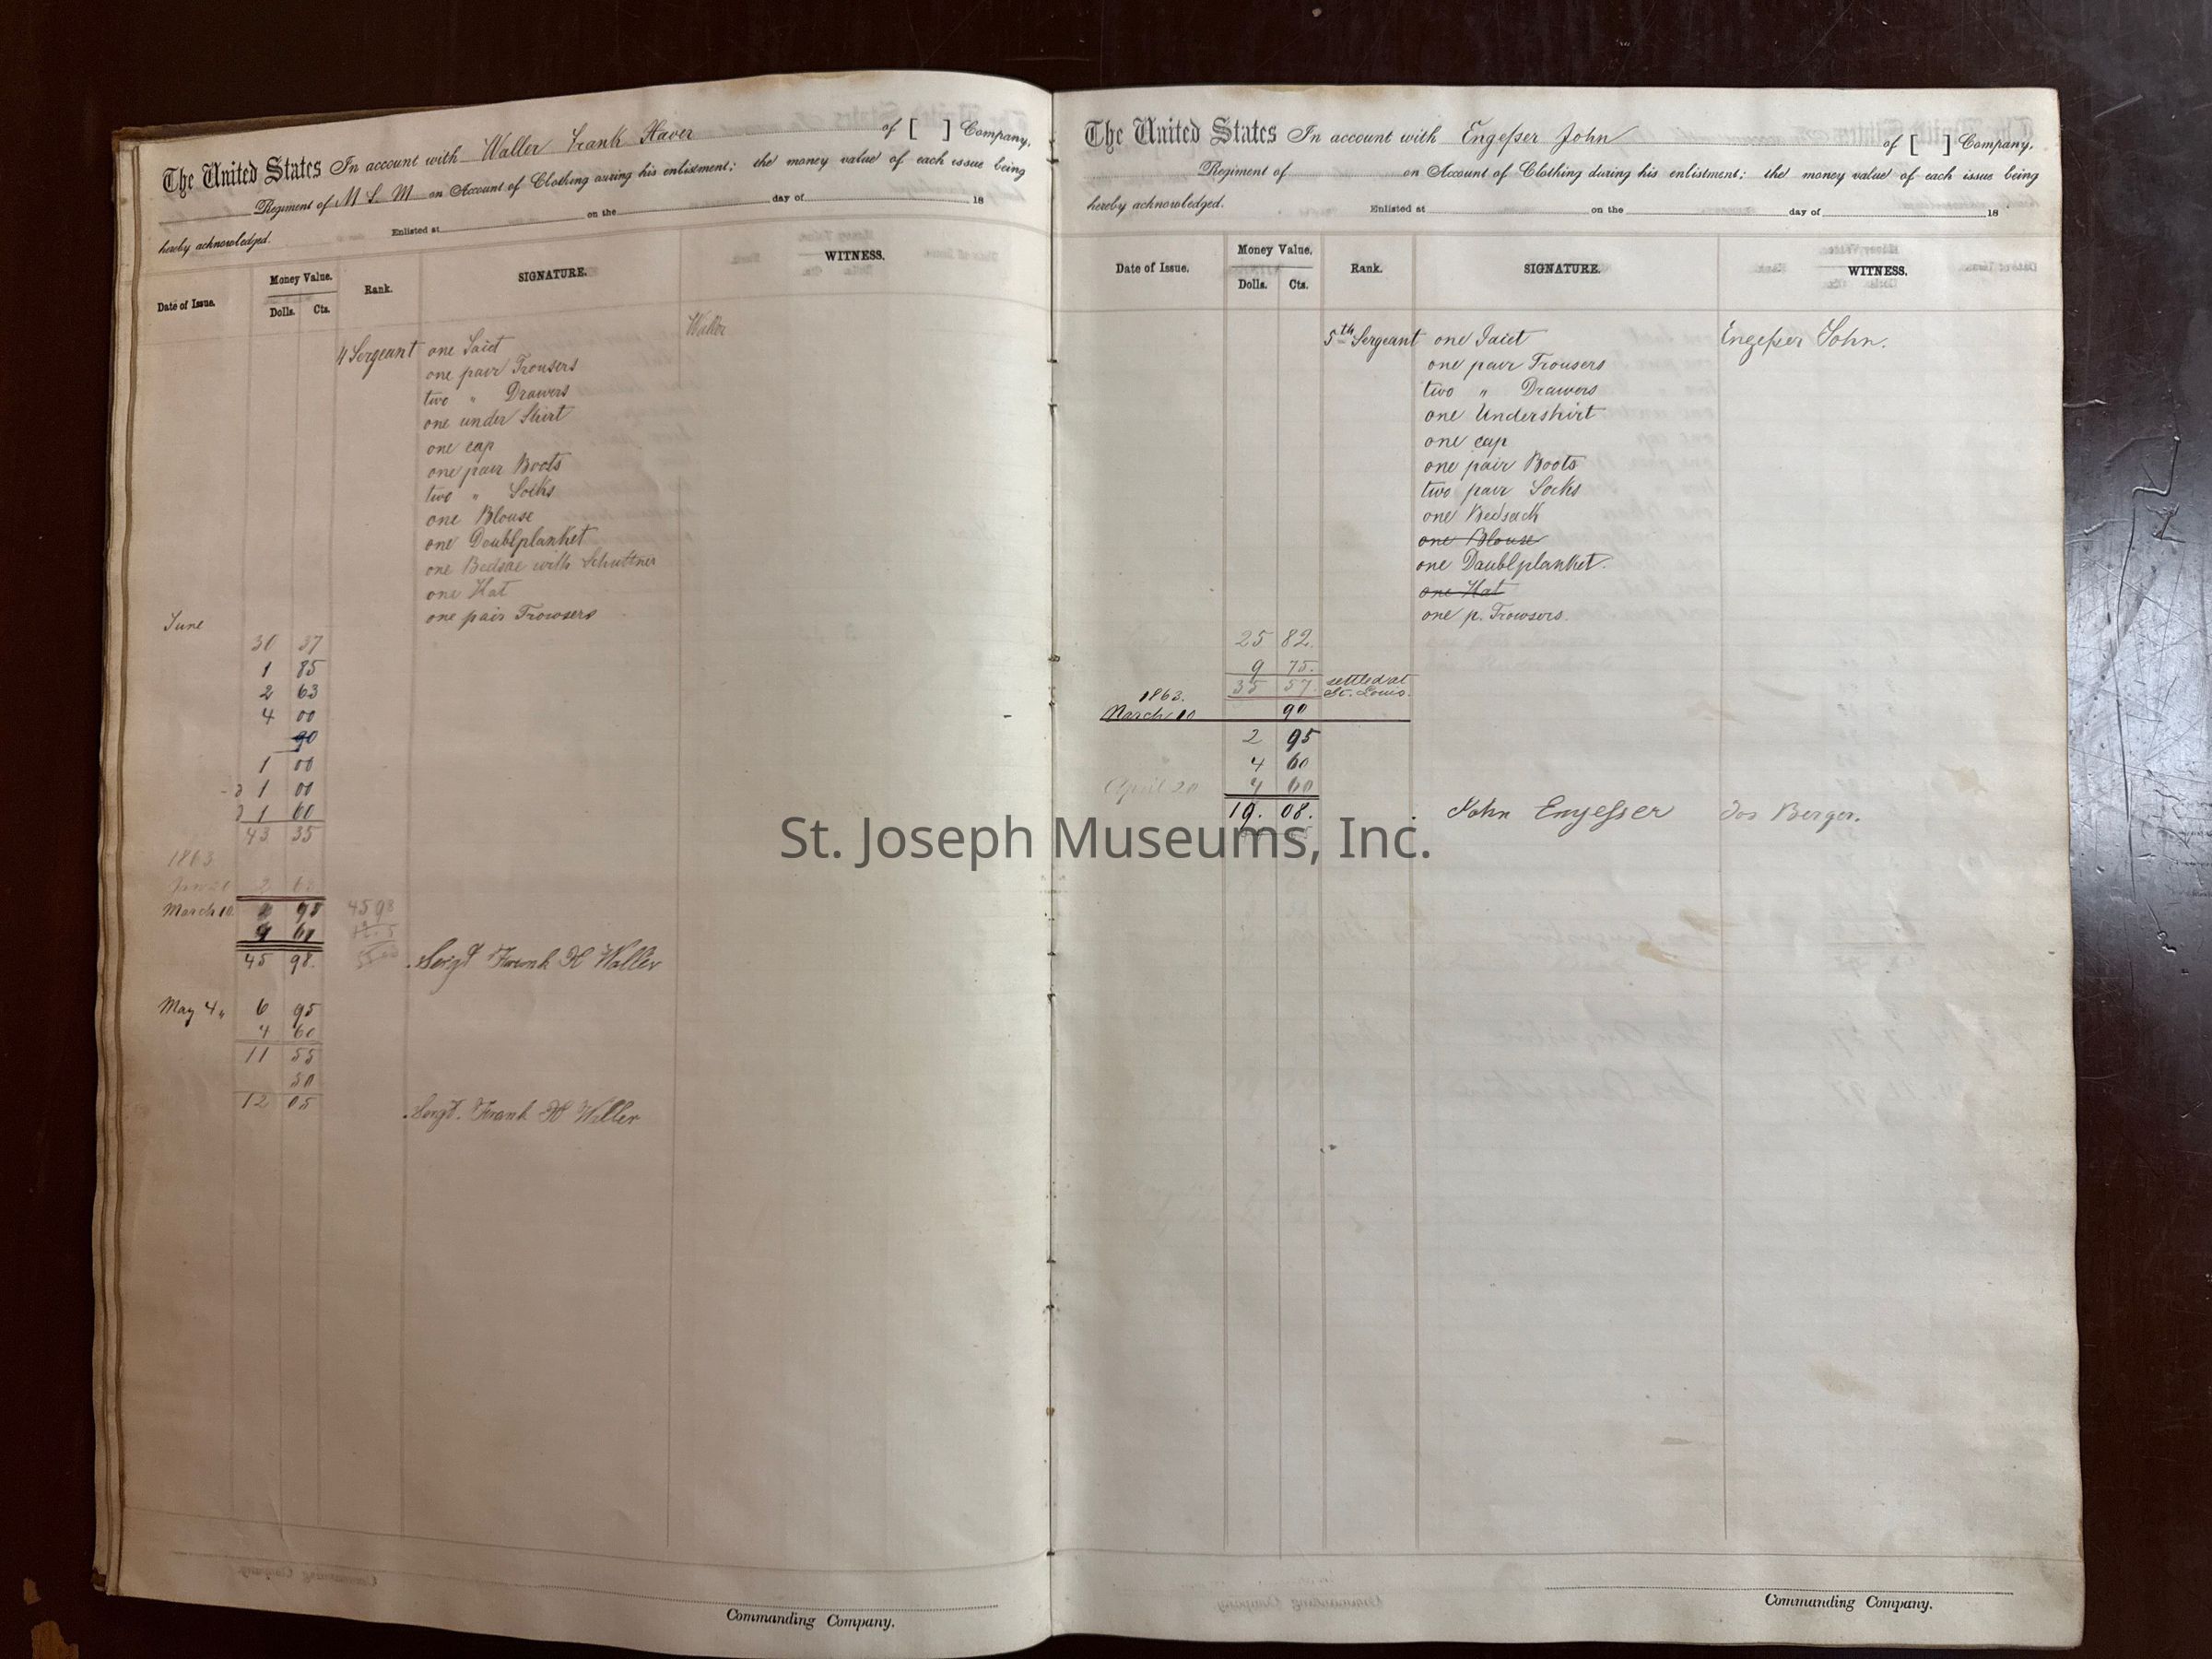 The United States In account with Waller Frank Haver of [ ] Company,
Regiment of M S M on Account of Clothing during his enlistment; the money value of each issue being
hereby acknowledged. Enlisted at on the day of 18
Date of Issue. Money Value. Rank. SIGNATURE. WITNESS.
Dolls. Cts.
Waller
4 Sergeant one Jaict
one pair Trousers
two " Drawers
one under Shirt
one cap
one pair Boots
two " Socks
one Blouse
one Doublplanket
one Bedsac with Schuttner
one Hat
one pair Trowsers
June
30 37
1 85
2 63
4 00
90
1 00
1 00
1 60
43 35
1863
March 10. 2 95 45 98
45 98.
Sergt Frank H Waller
May 4 " 6 95
4 60
11 55
50
12 05
Sergt. Frank H Waller
Commanding Company.
The United States In account with Engeßer John of [ ] Company,
Regiment of on Account of Clothing during his enlistment; the money value of each issue being
hereby acknowledged. Enlisted at on the day of 18
Date of Issue. Money Value. Rank. SIGNATURE. WITNESS.
Dolls. Cts.
5th Sergeant one Jaict Engeßer John.
one pair Trousers
two " Drawers
one Undershirt
one cap
one pair Boots
two pair Socks
one Bedsack
one Blouse
one Daublplanket.
one Hat
one p. Trowsers.
25 82.
9 75.
35 57. settled at
St. Louis.
1863.
March 10 90
2 95
4 60
April 20 4 60
19. 08. John Engesser Jos Berger.
Commanding Company.
St. Joseph Museums, Inc.